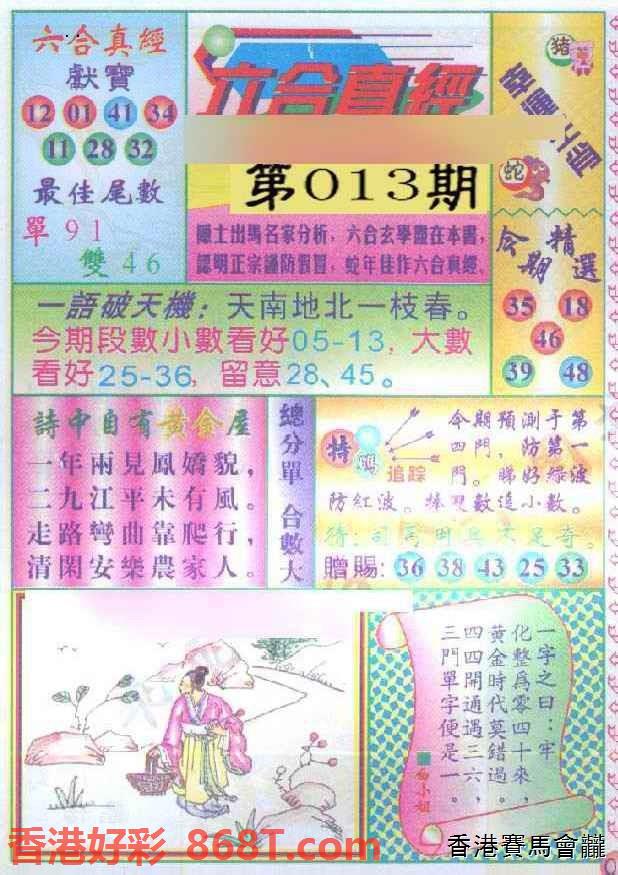 六合真經
獻寶
12 01 41 34
11 28 32
最佳尾數
單 91
雙 46
六合真經
第013期
隱士出馬名家分析，六合玄學盡在本書，
認明正宗謹防假冒，蛇年佳作六合真經。
豬
蛇
今期精選
35 18
46
39 48
一語破天機：天南地北一枝春。
今期段數小數看好05-13，大數
看好25-36，留意28、45。
詩中自有黃金屋
一年兩見鳳嬌貌，
二九江平未有風。
走路彎曲靠爬行，
清閑安樂農家人。
總分單 合數大
特碼
追踪
今期預測于第
四門，防第一
門。睇好綠波
防紅波。捧雙數追小數。
贈賜：36 38 43 25 33
一字之曰：牢
化整為零四十來，
黃金時代莫錯過。
四四開通遇三六，
三門單字便是一。
香港好彩 868T.com
香港賽馬會